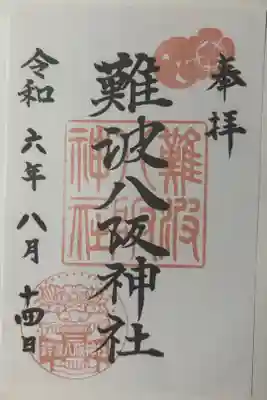 奉拝
難波八阪神社
難波八阪神社
令和六年八月十四日